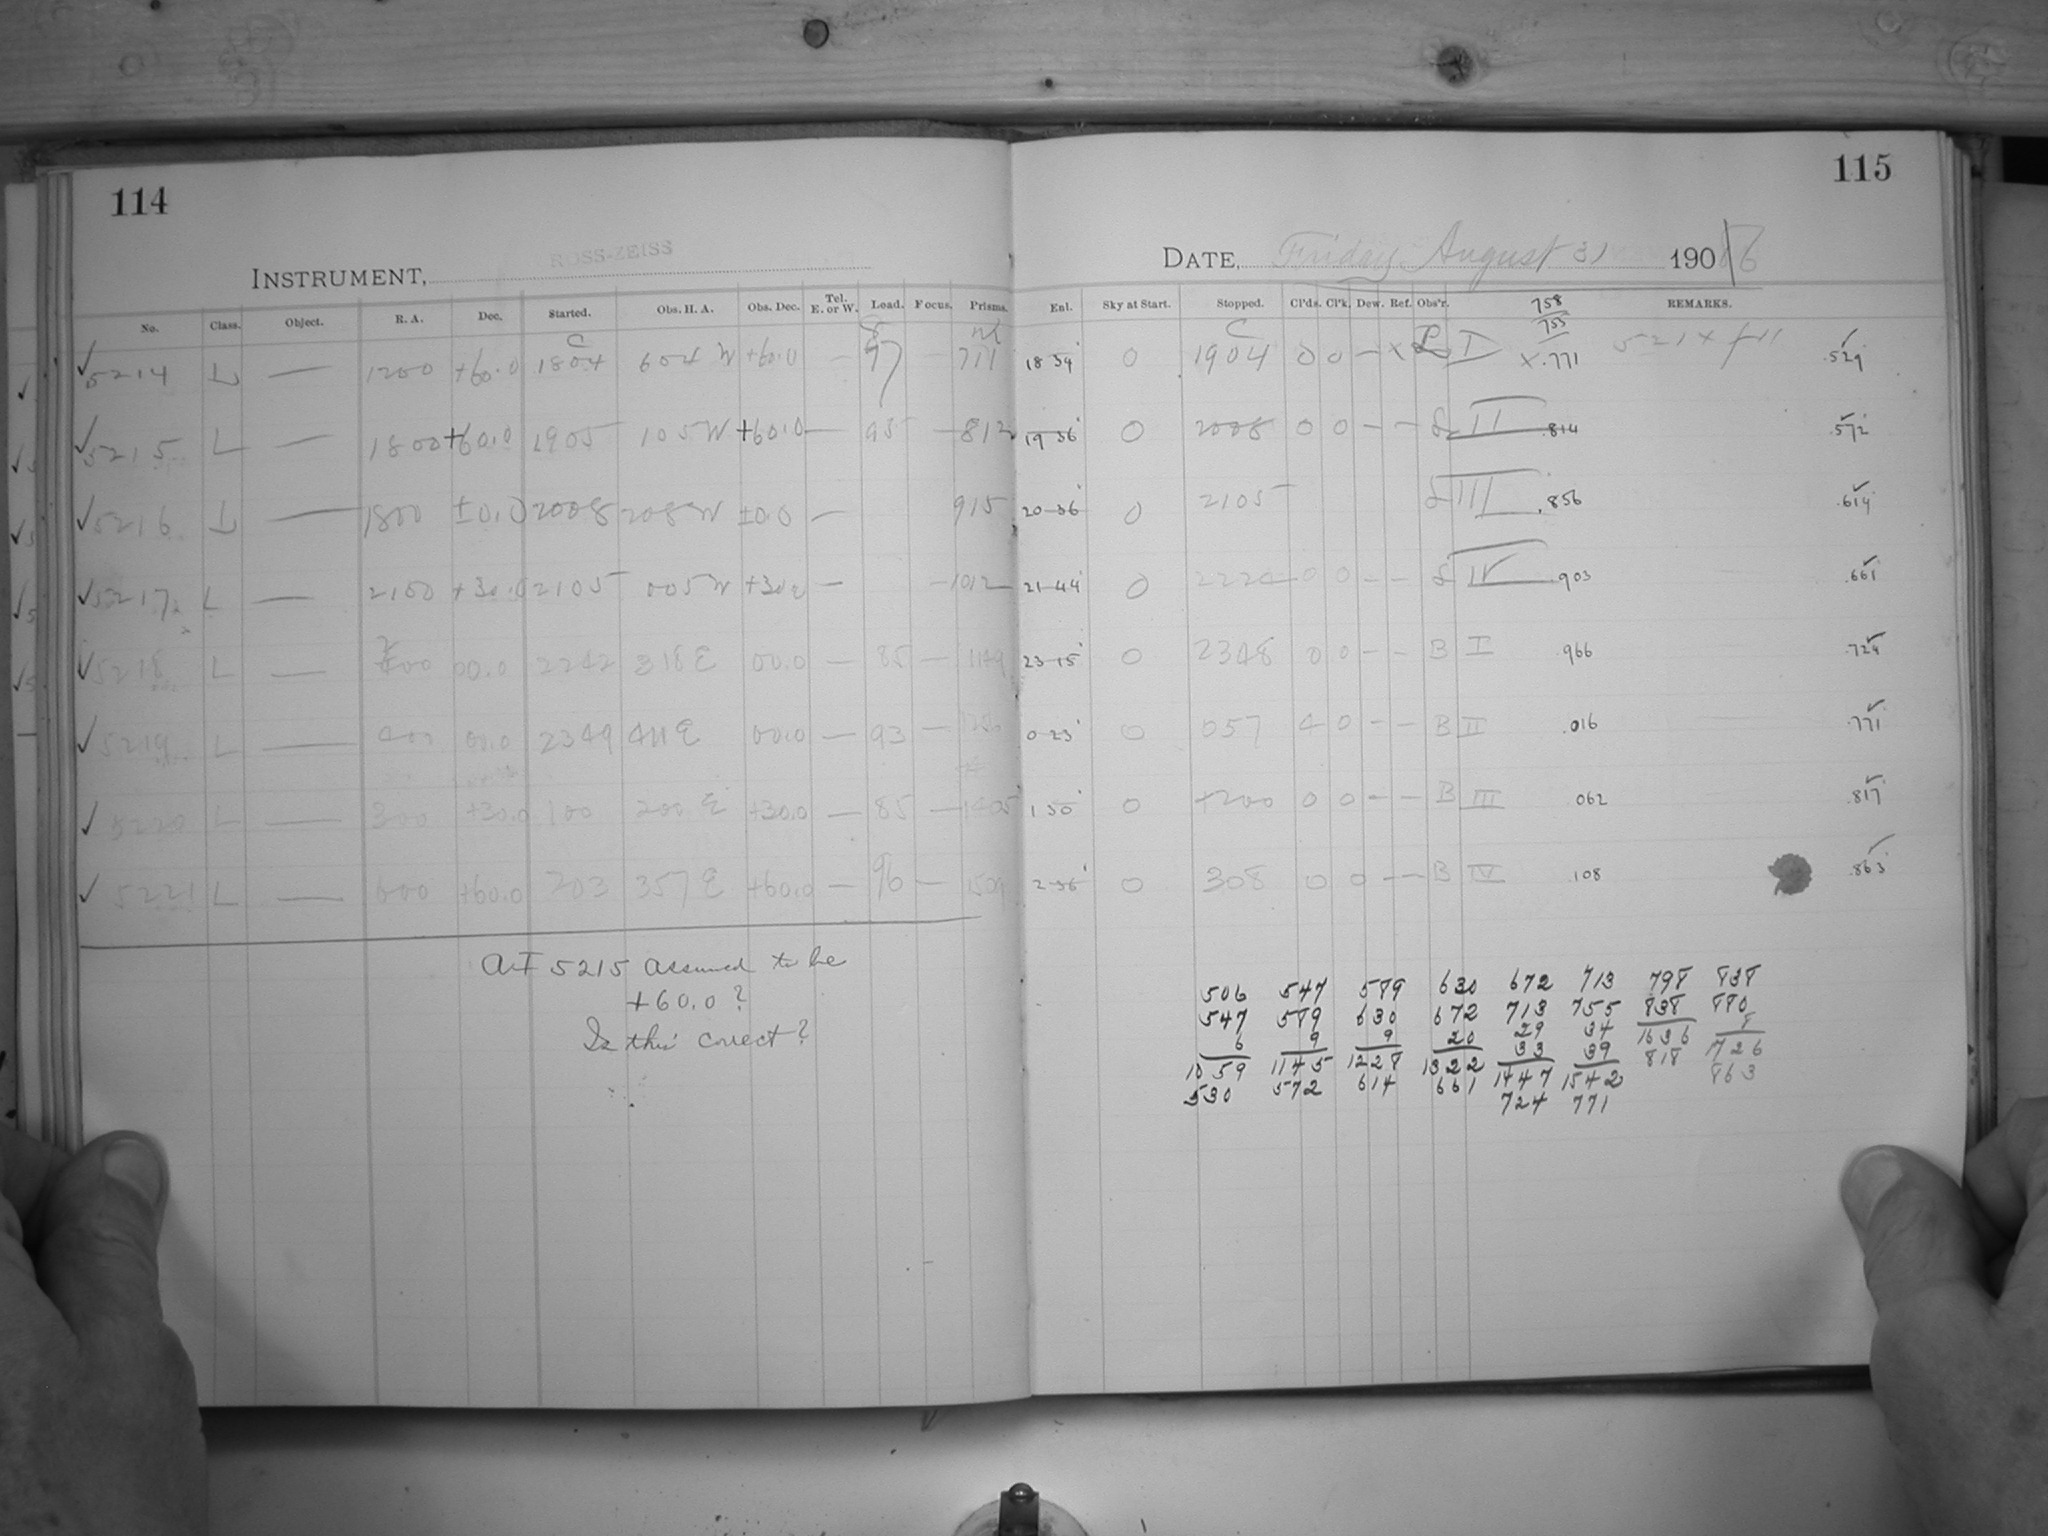 114
115
ROSS-ZEISS
INSTRUMENT,
DATE, Friday, August 31 1906
No. Class. Object. R. A. Dec. Started. Obs. H. A. Obs. Dec. Tel. E. or W. Load. Focus. Prisms. Enl. Sky at Start. Stopped. Cl'ds. Cl'k. Dew. Ref. Obs'r. 758 REMARKS.
755
✓ 5214 L — 1200 +60.0 1804 604 W +60.0 — 97 711 18 34 0 1904 0 0 — × I × .771 .529
✓ 5215 L — 1800 +60.0 1905 105 W +60.0 — 95 — 812 19 36 0 2008 0 0 — — L II .814 .572
✓ 5216 L — 1800 ±0.0 2008 208 W ±0.0 — 915 20 36 0 2105 L III .856 .614
✓ 5217 L — 2100 +30.0 2105 005 W +30.0 — — 1012 21 44 0 0 0 — — L IV .903 .661
✓ 5218 L — 00.0 2242 318 E 00.0 — 85 — 1149 23 15 0 2348 0 0 — — B I .966 .724
✓ 5219 L — 400 00.0 2349 411 E 00.0 — 93 — 0 23 0 057 4 0 — — B II .016 .771
✓ 5220 L — 300 +30.0 100 200 E +30.0 — 85 — 1405 1 30 0 200 0 0 — — B III .062 .817
✓ 5221 L — 600 +60.0 203 357 E +60.0 — 96 — 1509 2 36 0 308 0 0 — — B IV .108 .863
A.I 5215 assumed to be
+60.0?
Is this correct?
506 547 589 630 672 713 798 838
547 589 630 672 713 755 838 880
6 9 9 20 29 34 1636 8
1059 1145 1228 1322 33 39 818 1726
530 572 614 661 1447 1542 863
724 771